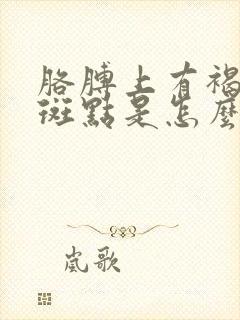 胳膊上有褐
斑點是怎麼
嵐歌